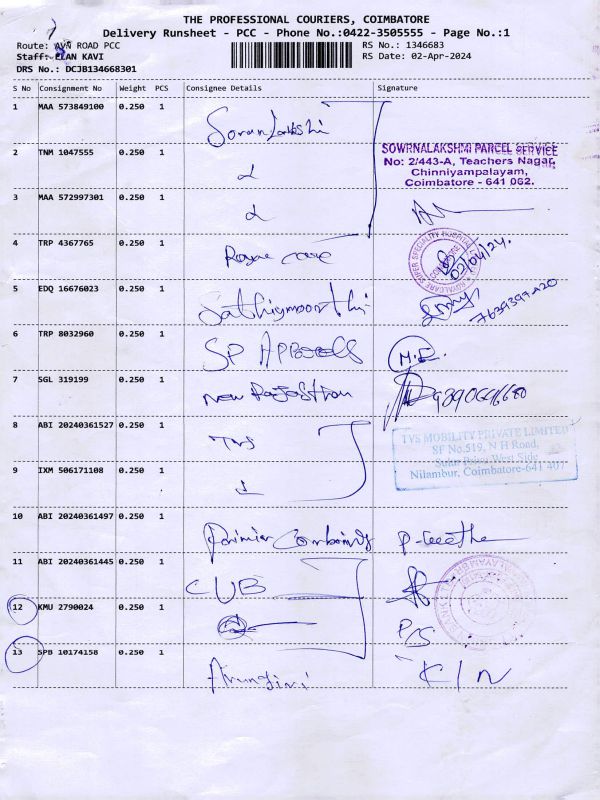 THE PROFESSIONAL COURIERS, COIMBATORE
Delivery Runsheet - PCC - Phone No.:0422-3505555 - Page No.:1
Route: AVN ROAD PCC
RS No.: 1346683
Staff: ELAN KAVI
RS Date: 02-Apr-2024
DRS No.: DCJB134668301
S No Consignment No Weight PCS Consignee Details Signature
1 MAA 573849100 0.250 1
2 TNM 1047555 0.250 1
SOWRNALAKSHMI PARCEL SERVICE
No: 2/443-A, Teachers Nagar,
Chinniyampalayam,
Coimbatore - 641 062.
3 MAA 572997301 0.250 1
4 TRP 4367765 0.250 1 Royal care
02/04/24.
5 EDQ 16676023 0.250 1 Sathiymoorthi
6 TRP 8032960 0.250 1 SP M.E.
7 SGL 319199 0.250 1 New Rajasthan
8 ABI 20240361527 0.250 1 TVS
TVS MOBILITY PRIVATE LIMITED
SF No.519, N H Road,
West Side
Nilambur, Coimbatore-641 407
9 IXM 506171108 0.250 1
10 ABI 20240361497 0.250 1
11 ABI 20240361445 0.250 1 CUB
12 KMU 2790024 0.250 1
13 SPB 10174158 0.250 1 K/N